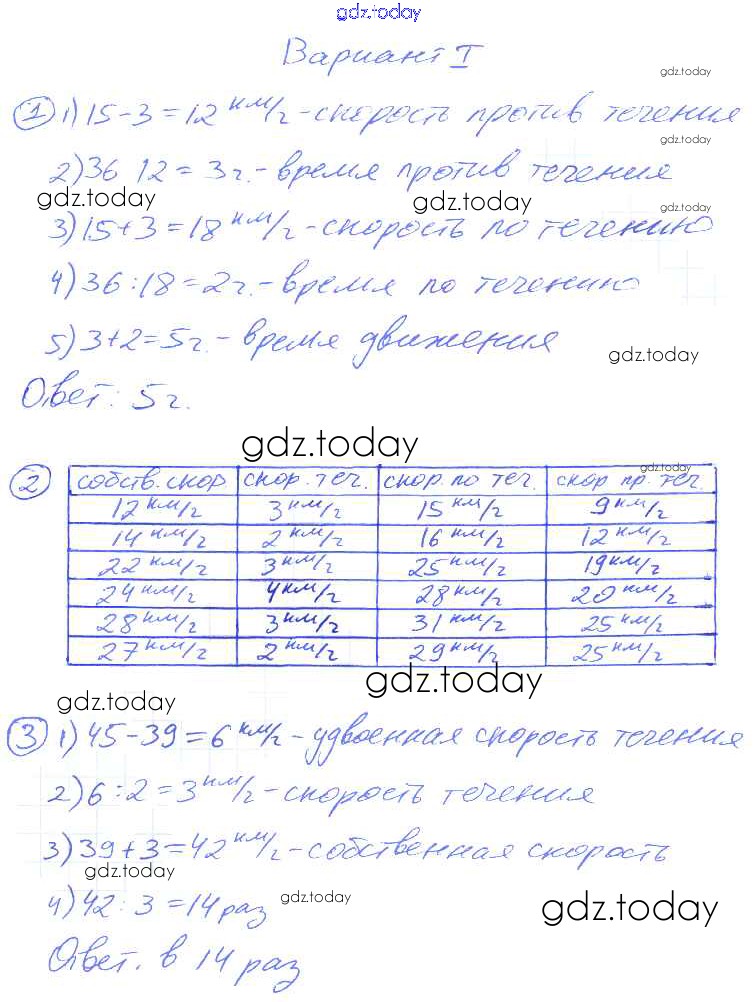 gdz.today
Вариант I
gdz.today
① 1) 15-3=12 км/г - скорость против течения
gdz.today
2) 36 12 = 3г. - время против течения
gdz.today gdz.today gdz.today
3) 15+3=18 км/г - скорость по течению
4) 36:18=2г. - время по течению
5) 3+2=5г. - время движения
gdz.today
Ответ: 5г.
gdz.today
gdz.today
② собств. скор скор. теч. скор. по теч. скор пр. теч.
12 км/г 3 км/г 15 км/г 9 км/г
14 км/г 2 км/г 16 км/г 12 км/г
22 км/г 3 км/г 25 км/г 19 км/г
24 км/г 4 км/г 28 км/г 20 км/г
28 км/г 3 км/г 31 км/г 25 км/г
27 км/г 2 км/г 29 км/г 25 км/г
gdz.today
gdz.today
③ 1) 45-39=6 км/г - удвоенная скорость течения
2) 6:2=3 км/г - скорость течения
3) 39+3=42 км/г - собственная скорость
gdz.today
4) 42:3=14 раз
gdz.today
gdz.today
Ответ. в 14 раз